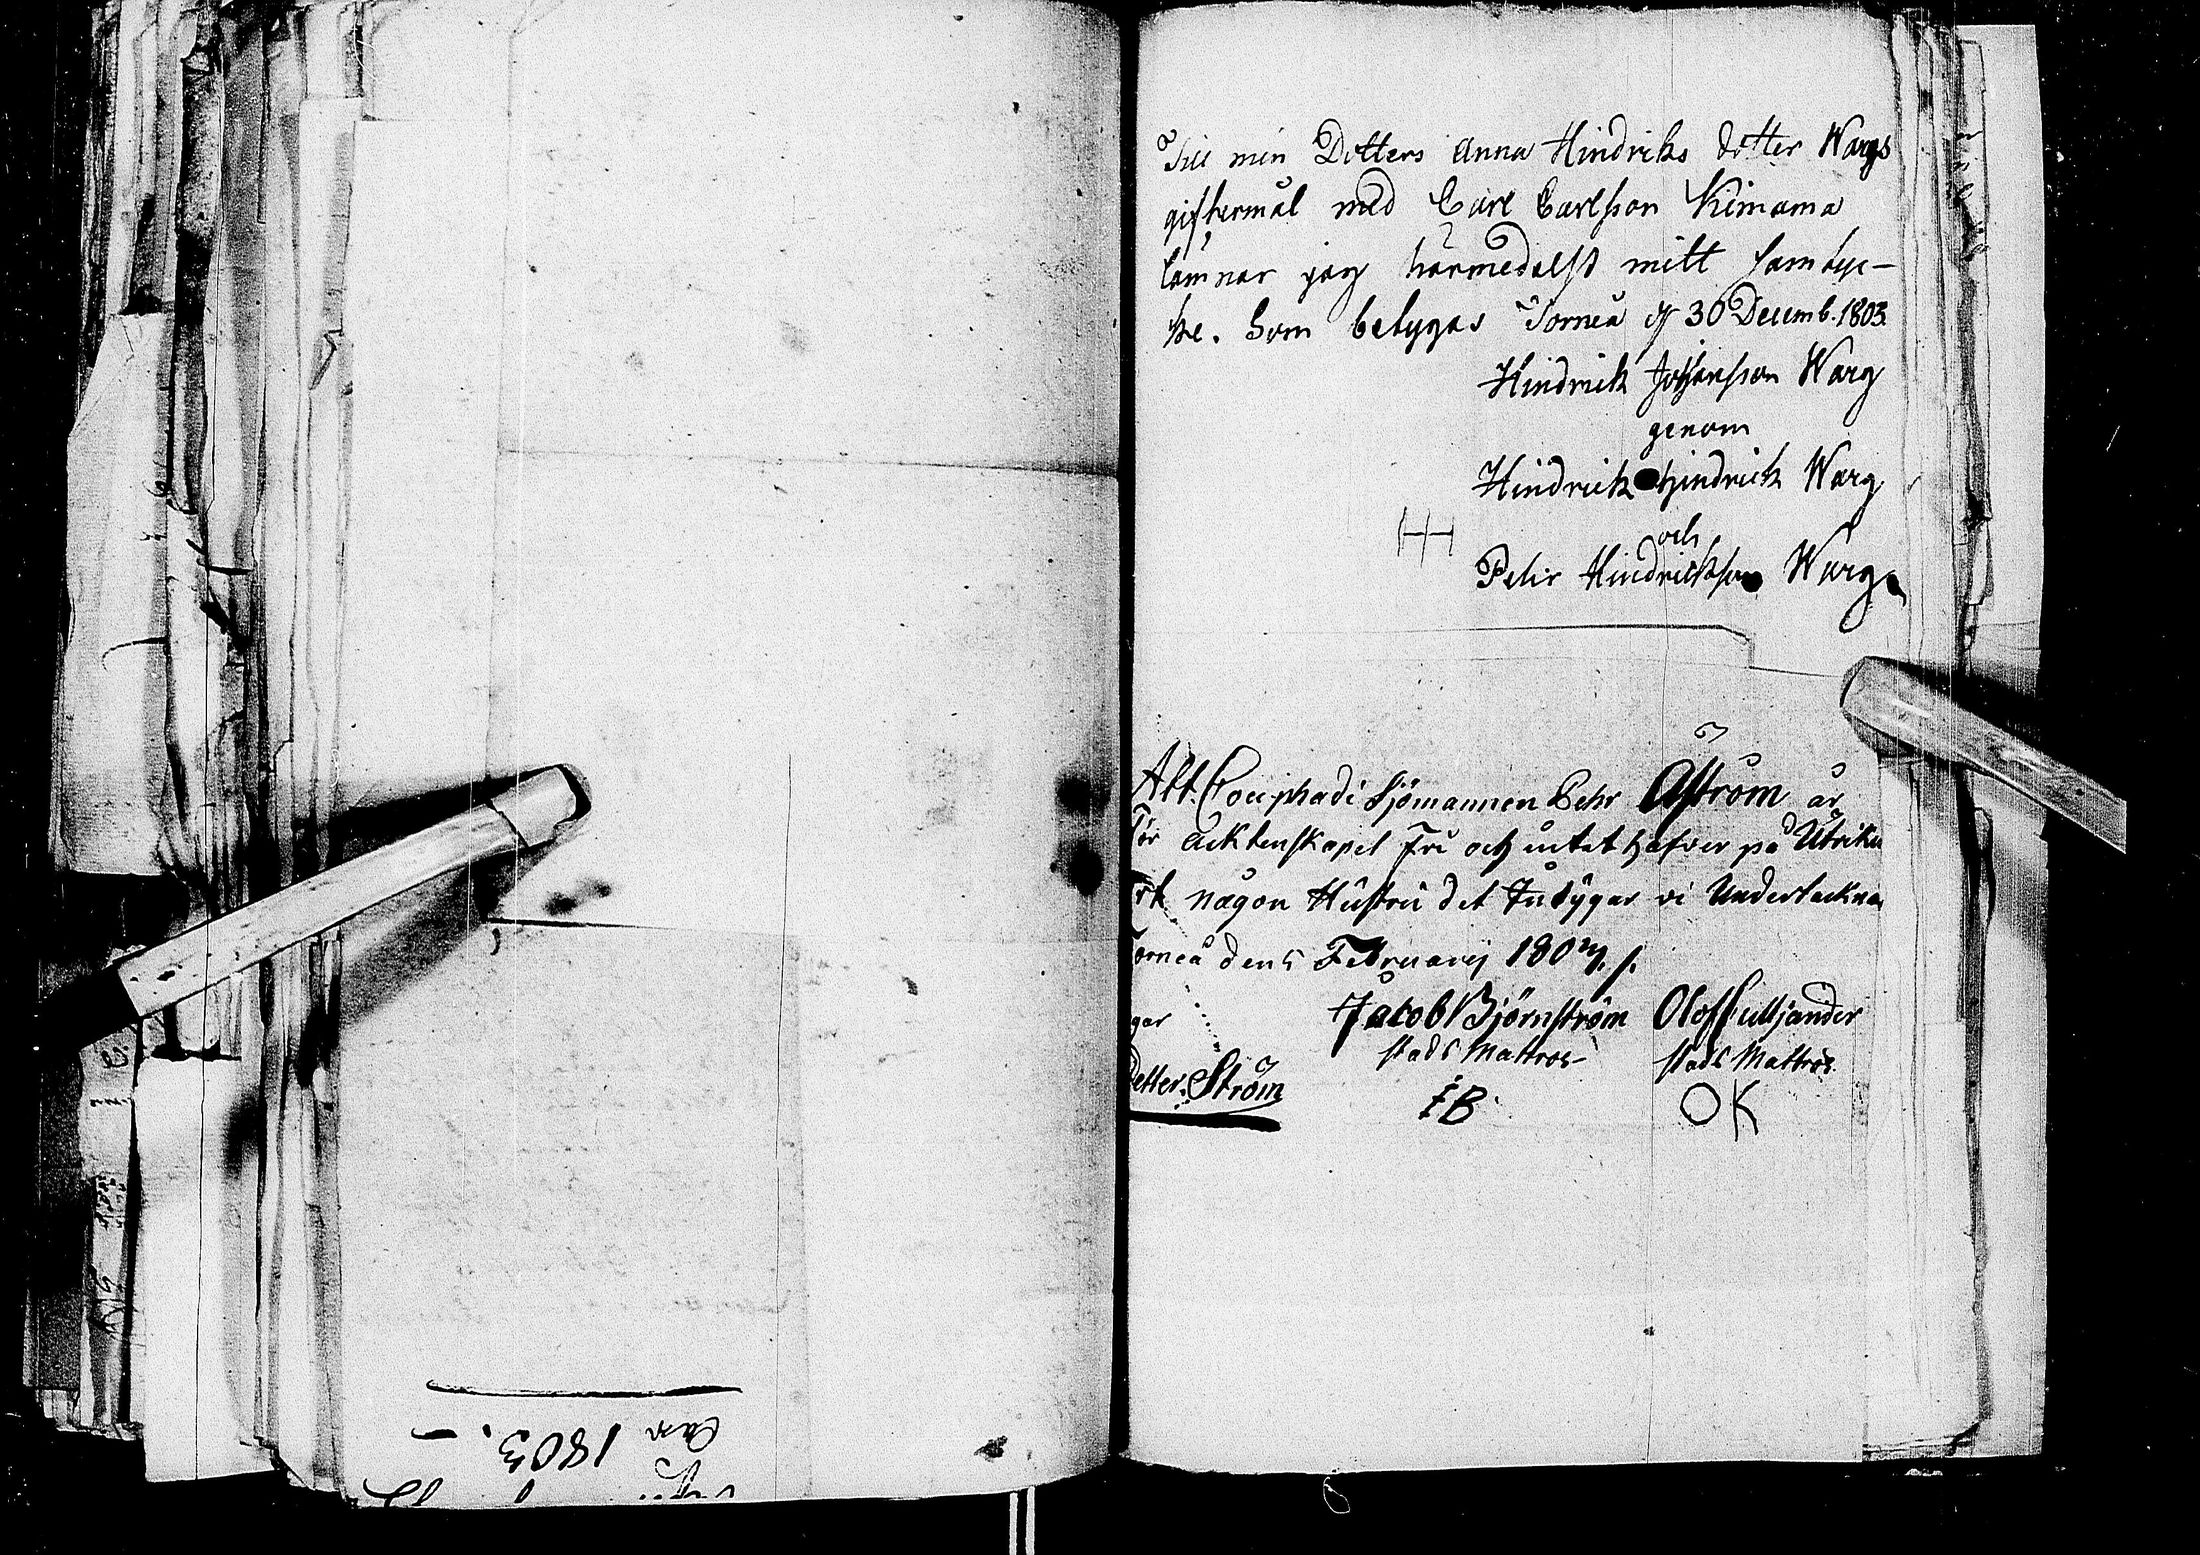 Till min Dotters Anna Hindriks dotter Wargs
giftermål med Carl Carlsson Kimama
lämnar jag härmedelst mitt samtyc-
ke. Som betygas Torneå d 30 Decemb. 1803.
Hindrick Johansson Warg
genom
Hindrick Hindrick Warg
och
HH
Petir Hindricksson Warg
Att Sjömannen Pehr Åström är
För äcktenskapet Fri och intet hafver på Utrikes
någon Hustru det Intÿgar vi Undertackna
Torneå den 5 Februarij 180
gar
Jacob Björnström Olof
stads Mattros stads Mattros
Petter Ström
IB OK
1803.